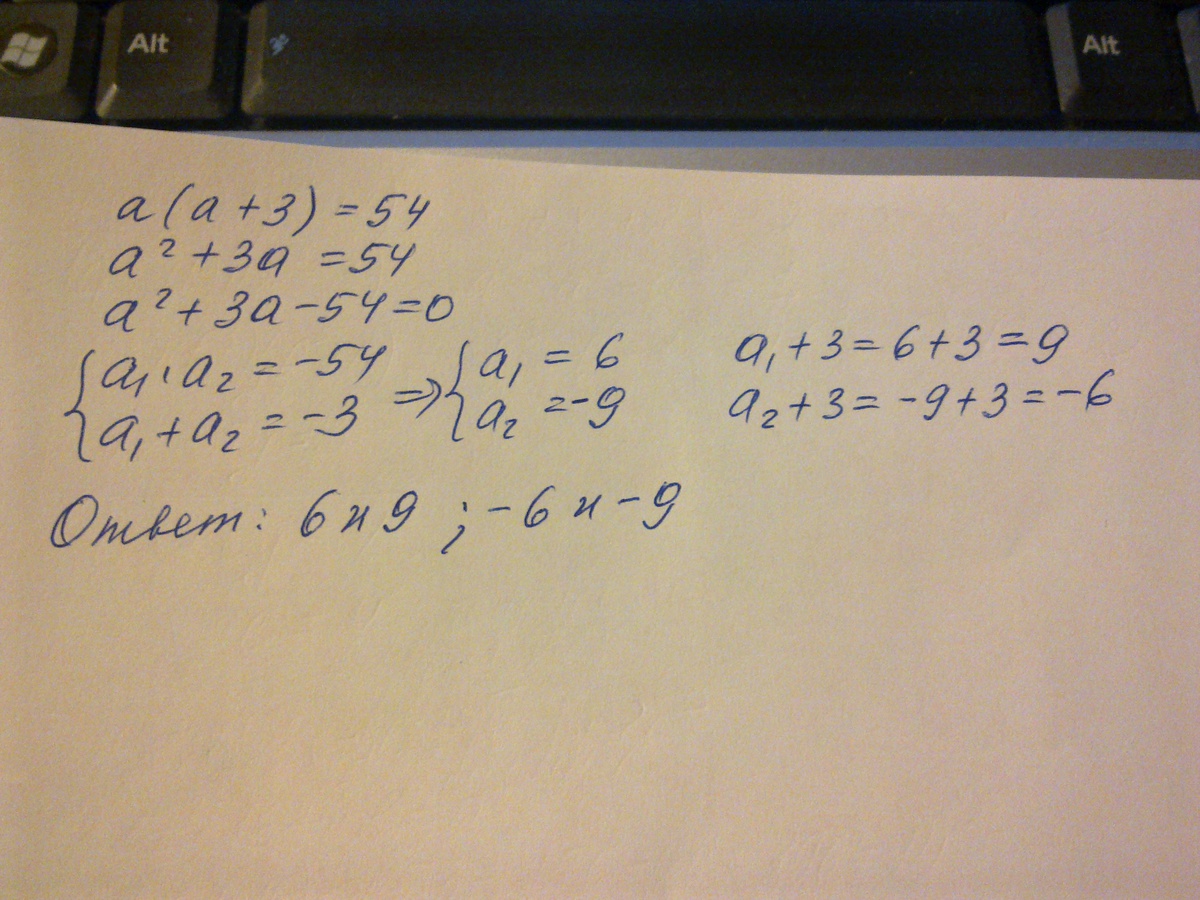 Alt Alt
a(a+3)=54
a²+3a=54
a²+3a-54=0
{a₁·a₂=-54 => {a₁=6 a₁+3=6+3=9
a₁+a₂=-3 a₂=-9 a₂+3=-9+3=-6
Ответ: 6 и 9 ; -6 и -9